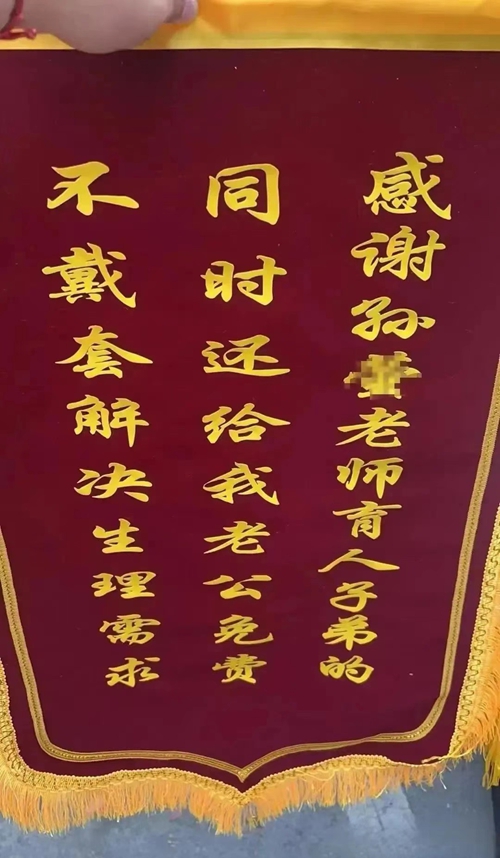 感谢孙老师育人子弟的
同时还给我老公免费
不戴套解决生理需求